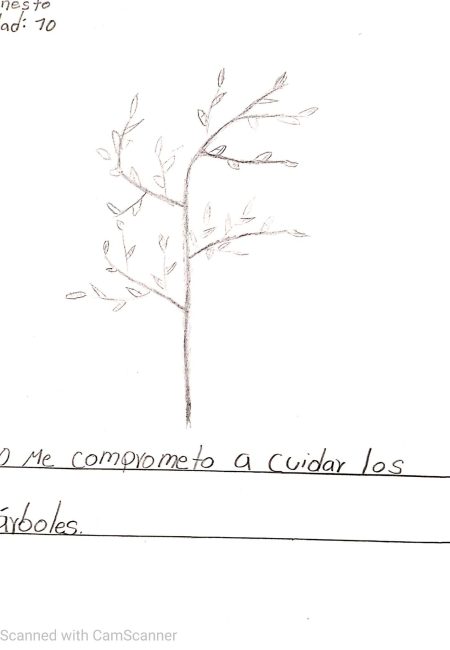 nesto
ad: 10
Me comprometo a cuidar los
árboles.
Scanned with CamScanner